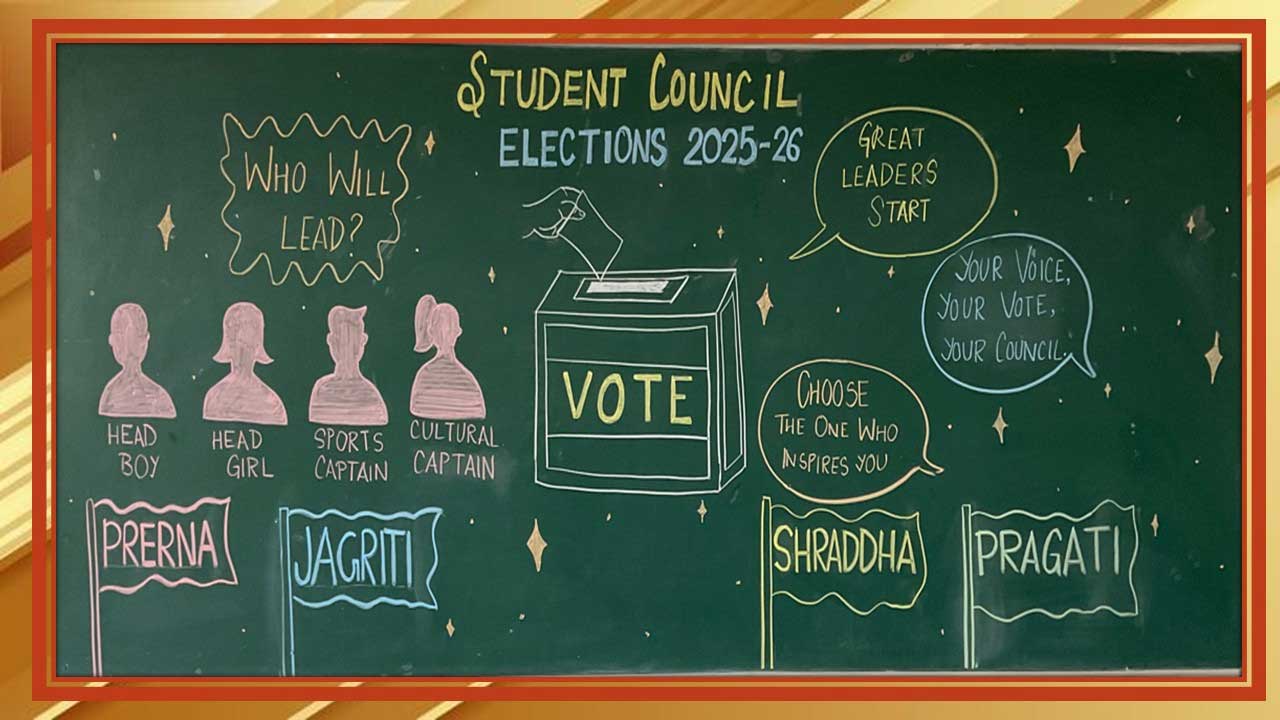 STUDENT COUNCIL
ELECTIONS 2025-26
WHO WILL
LEAD?
GREAT
LEADERS
START
YOUR VOICE,
YOUR VOTE,
YOUR COUNCIL.
HEAD
BOY
HEAD
GIRL
SPORTS
CAPTAIN
CULTURAL
CAPTAIN
VOTE
CHOOSE
THE ONE WHO
INSPIRES YOU
PRERNA
JAGRITI
SHRADDHA
PRAGATI